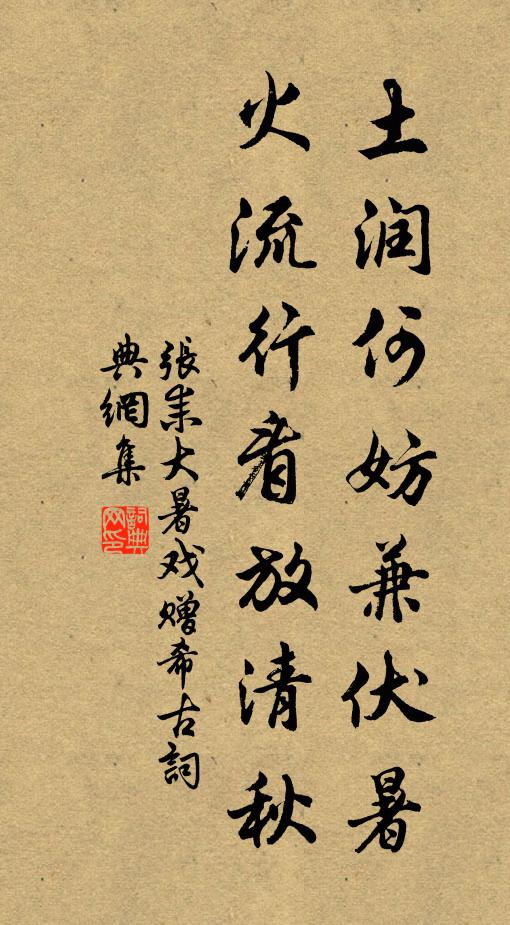 土润何妨兼伏暑
火流行看放清秋
張耒大暑戏赠希古詞
典網集
詞典网印